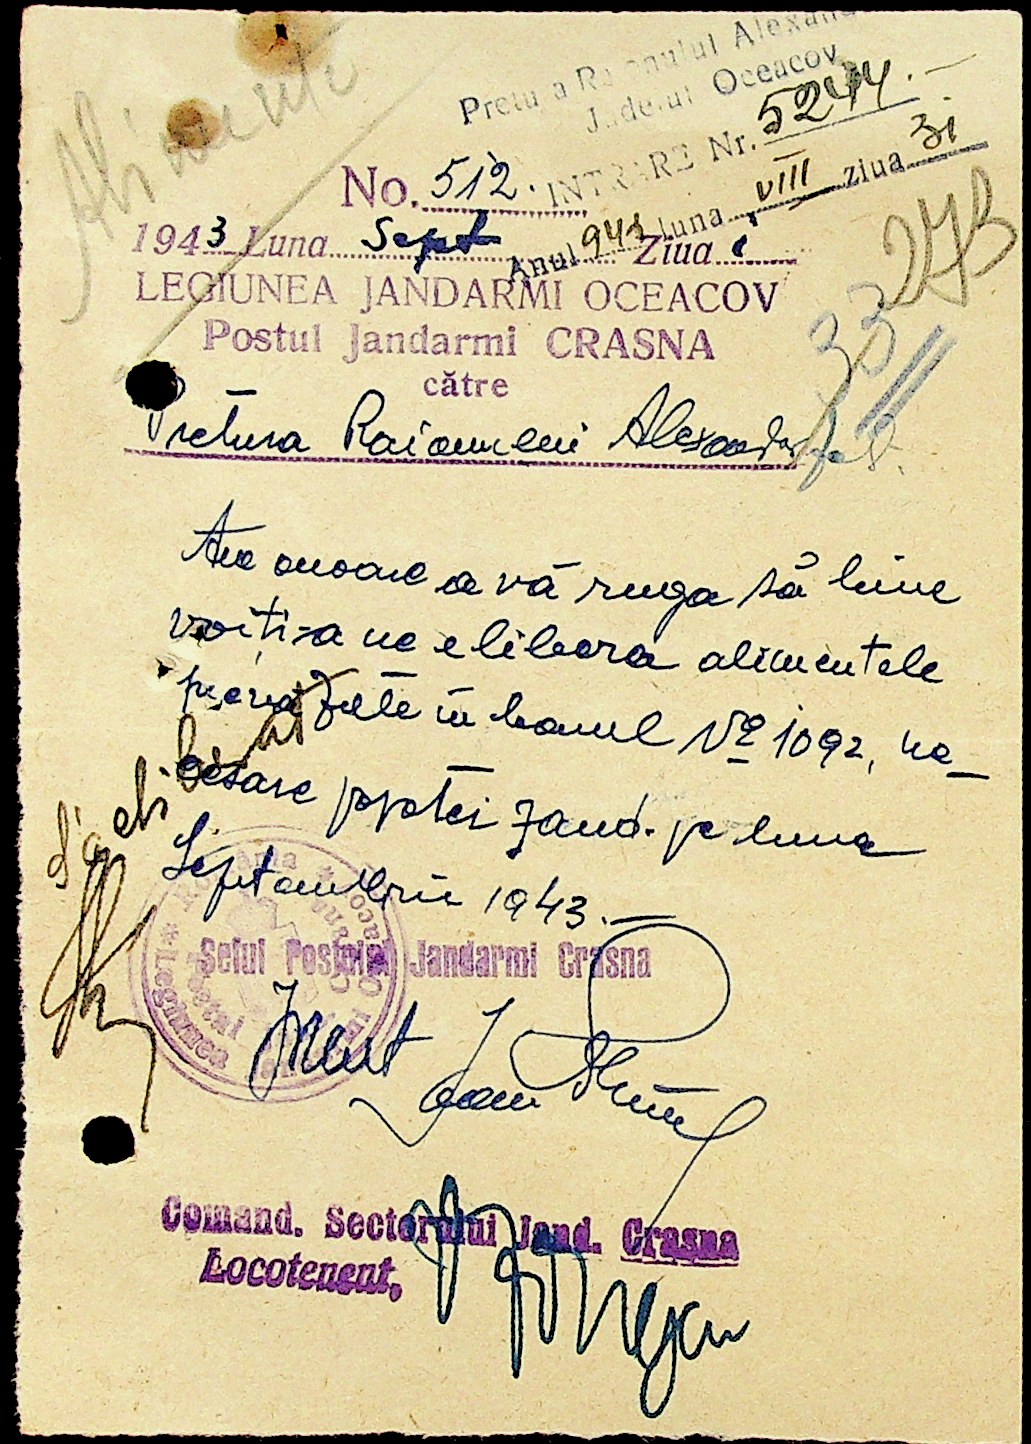 Alimente
Pretura Raionului Alexand
Județul Oceacov
INTRARE Nr. 5244.
Anul 943 luna VIII ziua 31
No. 512.
1943 Luna Sept Ziua 1
LEGIUNEA JANDARMI OCEACOV
Postul Jandarmi CRASNA
către
273
33
Pretura Raionului Alexandrfeld.
Am onoare a vă ruga să bine
voiți-a ne elibera alimentele
prevăzute în bonul No 1092, ne-
cesare popotei jand. pe luna
Septembrie 1943.—
S'a eliberat
Seful Postului Jandarmi Crasna
România
Legiunea
Ioan
Comand. Sectorului Jand. Crasna
Locotenent,